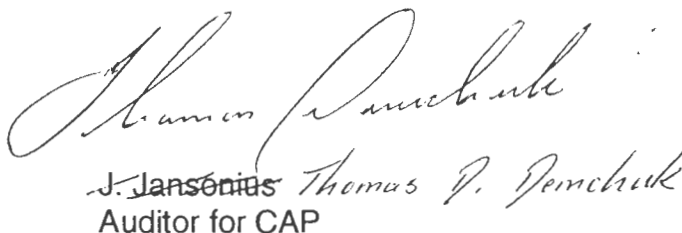 Thomas Demchuk
J. Jansonius Thomas D. Demchuk
Auditor for CAP